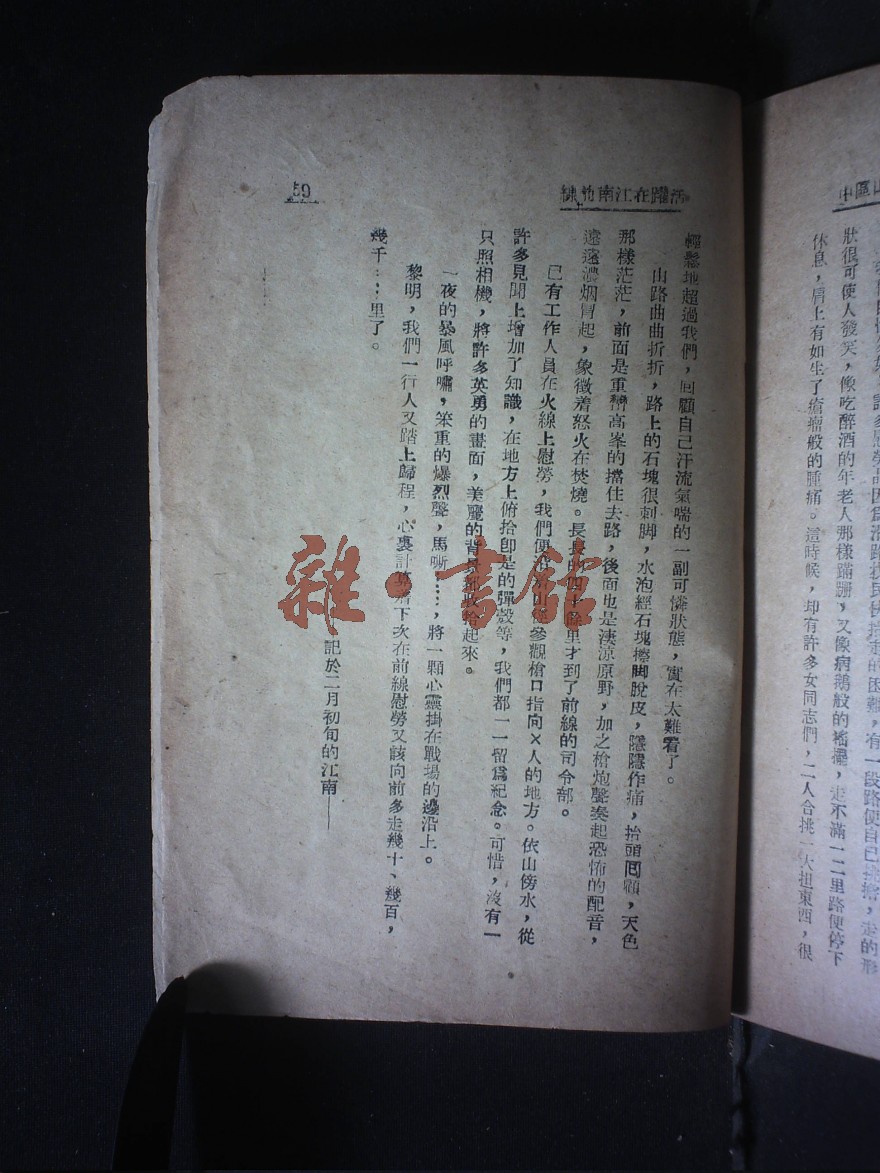 狀很可使人發笑，像吃醉酒的年老人那樣蹣跚，又像病鵝般的搖擺，走不滿一二里路便停下
休息，肩上有如生了瘡瘤般的腫痛。這時候，却有許多女同志們，二人合挑一大担東西，很
活躍在江南的
59
輕鬆地超過我們，回顧自己汗流氣喘的一副可憐狀態，實在太難看了。
山路曲曲折折，路上的石塊很刺脚，水泡經石塊擦脚脫皮，隱隱作痛，抬頭回顧，天色
那樣茫茫，前面是重巒高峯的擋住去路，後面也是淒涼原野，加之槍炮聲奏起恐怖的配音，
遠遠濃烟冒起，象徵着怒火在焚燒。長長的四十餘里才到了前線的司令部。
已有工作人員在火線上慰勞，我們便沿着山徑參觀槍口指向×人的地方。依山傍水，從
許多見聞上增加了知識，在地方上俯拾卽是的彈殼等，我們都一一留爲紀念。可惜，沒有一
只照相機，將許多英勇的畫面，美麗的背景都收拾起來。
一夜的暴風呼嘯，笨重的爆烈聲，馬嘶……，將一顆心靈掛在戰場的邊沿上。
黎明，我們一行人又踏上歸程，心裏計算着下次在前線慰勞又該向前多走幾十、幾百，
幾千……里了。
——記於二月初旬的江南——
雜·書館